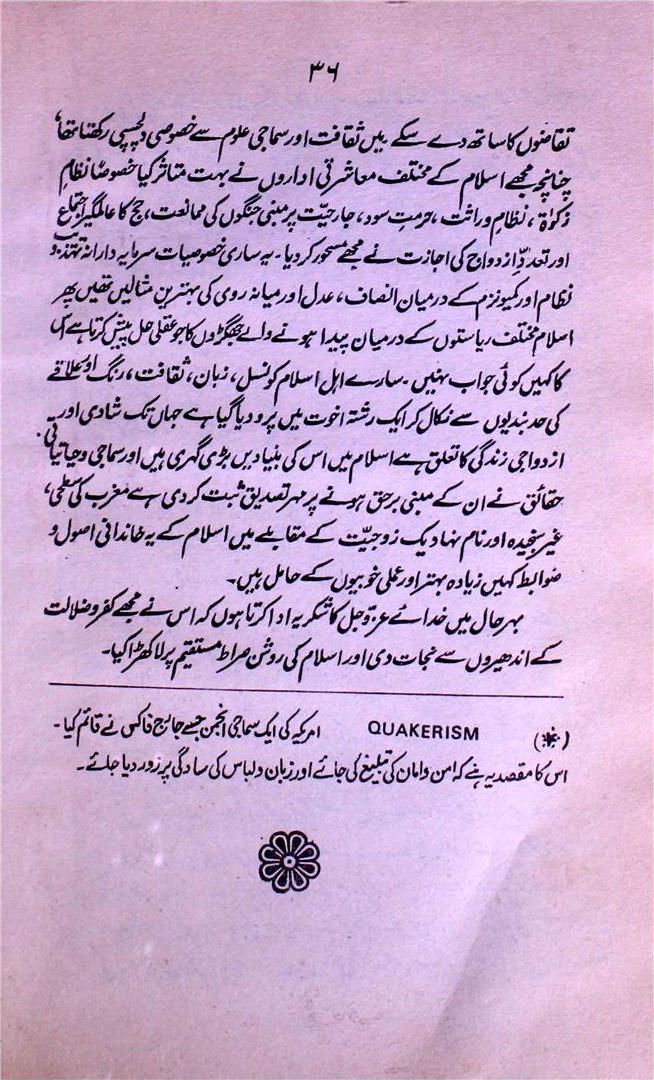 ۳۶
تقاضوں کا ساتھ دے سکے میں ثقافت اور سماجی علوم سے خصوصی دلچسپی رکھتا تھا،
چنانچہ مجھے اسلام کے مختلف معاشرتی اداروں نے بہت متاثر کیا خصوصاً نظامِ
زکوٰۃ، نظامِ وراثت، حرمتِ سود، جارحیّت پر مبنی جنگوں کی ممانعت، حج کا عالمگیر اجتماع
اور تعددِ ازدواج کی اجازت نے مجھے مسحور کر دیا۔ یہ ساری خصوصیات سرمایہ دارانہ تہذیب و
نظام اور کمیونزم کے درمیان انصاف، عدل اور میانہ روی کی بہترین مثالیں تھیں پھر
اسلام مختلف ریاستوں کے درمیان پیدا ہونے والے جھگڑوں کا جو عقلی حل پیش کرتا ہے اس
کا کہیں کوئی جواب نہیں ۔ سارے اہل اسلام کو نسل، زبان، ثقافت، رنگ اور علاقے
کی حد بندیوں سے نکال کر ایک رشتہ اخوت میں پرو دیا گیا ہے جہاں تک شادی اور
ازدواجی زندگی کا تعلق ہے اسلام میں اس کی بنیادیں بڑی گہری ہیں اور سماجی و حیاتیاتی
حقائق نے ان کے مبنی برحق ہونے پر مہر تصدیق ثبت کر دی ہے مغرب کی سطحی،
غیر سنجیدہ اور نام نہاد یک زوجیّت کے مقابلے میں اسلام کے یہ خاندانی اصول و
ضوابط کہیں زیادہ بہتر اور عملی خوبیوں کے حامل ہیں۔
بہرحال میں خدائے عزّوجل کا شکریہ ادا کرتا ہوں کہ اس نے مجھے کفر و ضلالت
کے اندھیروں سے نجات دی اور اسلام کی روشن صراط مستقیم پر لا کھڑا کیا۔
(*) QUAKERISM امریکہ کی ایک سماجی انجمن جسے جارج فاکس نے قائم کیا۔
اس کا مقصد یہ ہے کہ امن و امان کی تبلیغ کی جائے اور زبان و لباس کی سادگی پر زور دیا جائے۔